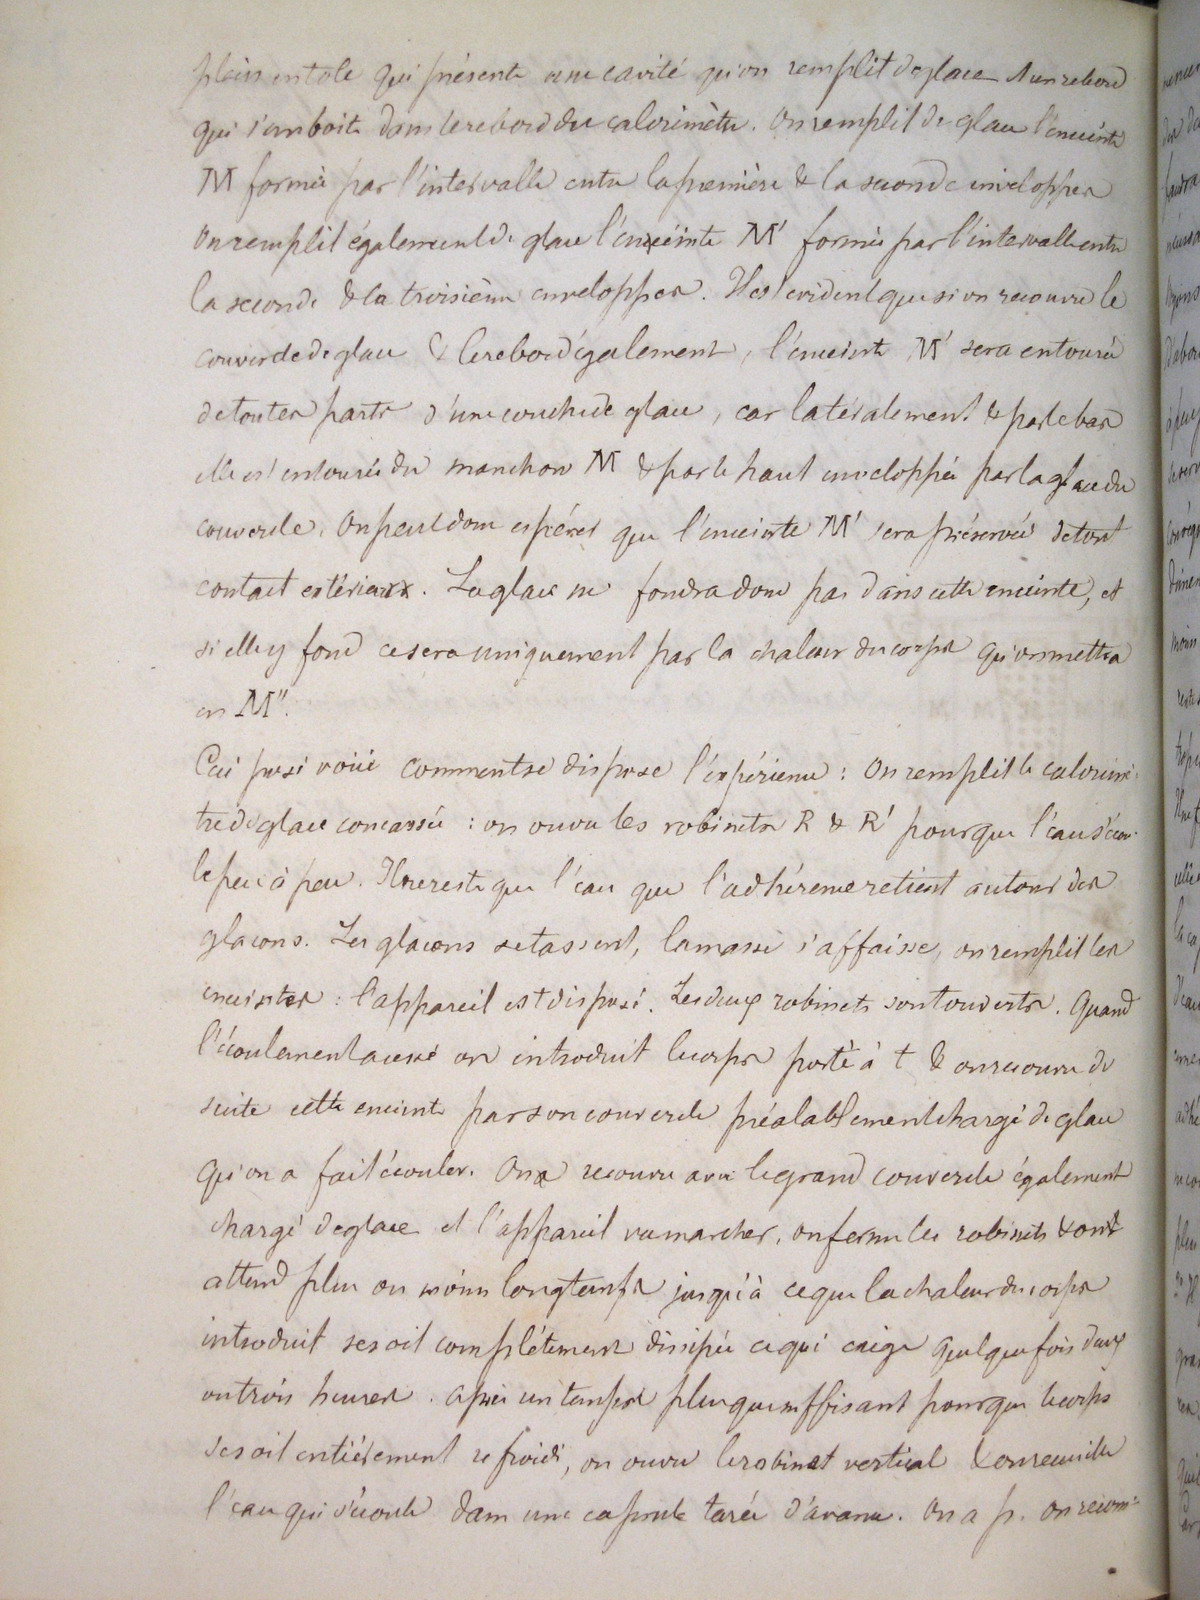 plein en tole qui présente une cavité qu'on remplit de glace & un rebord
qui s'emboite dans le rebord du calorimètre. On remplit de glace l'enceinte
M formée par l'intervalle entre la première & la seconde enveloppes
On remplit également de glace l'enceinte M' formée par l'intervalle entre
la seconde & la troisième enveloppes. Il est évident que si on recouvre le
couvercle de glace & le rebord également, l'enceinte M' sera entourée
de toutes parts d'une couche de glace, car latéralement & par le bas
elle est entourée du manchon M & par le haut enveloppée par la glace du
couvercle. On peut donc espérer que l'enceinte M' sera préservée de tout
contact extérieur. La glace ne fondra donc pas dans cette enceinte, et
si elle y fond ce sera uniquement par la chaleur du corps qu'on mettra
en M".
Ceci posé voici comment se dispose l'expérience : On remplit le calorimè-
tre de glace concassée : on ouvre les robinets R & R' pour que l'eau s'écou-
le peu à peu. Il ne reste que l'eau que l'adhérence retient autour des
glaçons. Les glaçons se tassent, la masse s'affaisse, on remplit les
enceintes : l'appareil est disposé. Les deux robinets sont ouverts. Quand
l'écoulement a cessé on introduit le corps porté à t & on recouvre de
suite cette enceinte par son couvercle préalablement chargé de glace
qu'on a fait écouler. On recouvre avec le grand couvercle également
chargé de glace et l'appareil va marcher, on ferme les robinets & on
attend plus ou moins longtemps jusqu'à ce que la chaleur du corps
introduit se soit complétement dissipée ce qui exige quelquefois deux
ou trois heures. Après un temps plus que suffisant pour que le corps
se soit entièrement refroidi, on ouvre le robinet vertical & on recueille
l'eau qui s'écoule dans une capsule tarée d'avance. On a p. On recom-